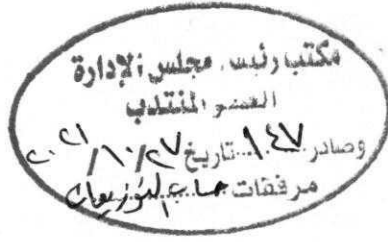 مكتب رئيس مجلس الإدارة
العضو المنتدب
وصادر ٩٤٧ تاريخ ٢٧/١٠/٢٠٢١
مرفقات حساب التوزيعات